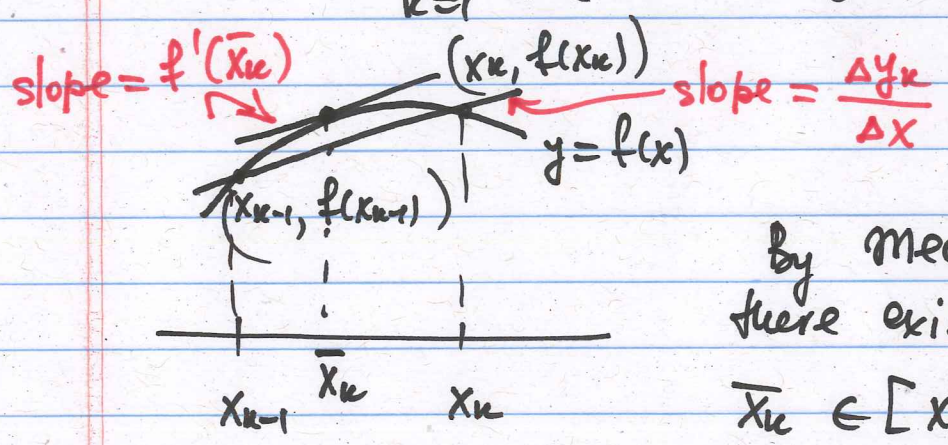 k=1
slope = f'(x̄k)
(xk, f(xk))
slope = Δyk/Δx
y = f(x)
(xk-1, f(xk-1))
By
there
x̄k
xk-1
xk
x̄k ∈ [x